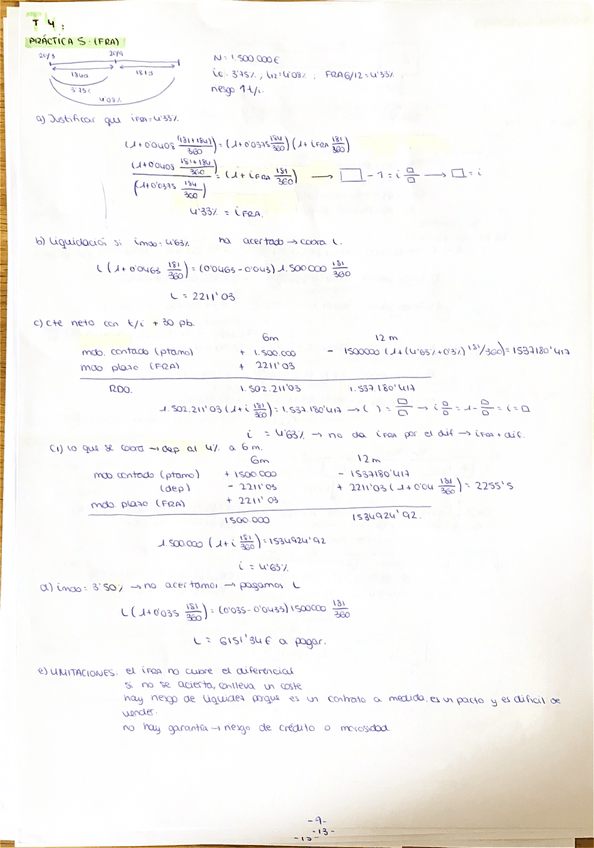 T 4:
PRÁCTICA 5 - (FRA)
20/3 20/9
184d 181d
3'75%
4'03%
N = 1.500.000€
FRA6/12 = 4'33%
riesgo ↑ t/i.
a) Justificar que iFRA = 4'33%
(1+0'0403 (181+184)/360) = (1+0'0375 184/360) (1+iFRA 181/360)
(1+0'0403 (181+184)/360) / (1+0'0375 184/360) = (1+iFRA 181/360) → □ - 1 = i □/□ → □ = i
4'33% = iFRA.
b) Liquidación si imdo = 4'63% ha acertado → cobra L.
L (1+0'0463 181/360) = (0'0463 - 0'043) 1.500000 181/360
L = 2211'03
c) Cte neto con t/i + 30 pb.
6m 12 m
mdo. contado (ptamo) + 1.500.000 - 1500000 (1+(4'65%+0'3%) 181/360) = 1537180'417
mdo plazo (FRA) + 2211'03
RDO. 1.502.211'03 1.537.180'417
1.502.211'03 (1+i 181/360) = 1.537.180'417 → ( ) = □/□ → i □/□ = 1-□/□ = i = □
i = 4'63% → no da iFRA por el dif → iFRA + dif.
C1) lo que se cobra → dep al 4% a 6m.
6m 12m
mdo contado (ptamo) + 1500000 - 1537180'417
(dep) - 2211'03 + 2211'03 (1+0'04 181/360) = 2255'5
mdo plazo (FRA) + 2211'03
1500.000 1534924'92.
1.500.000 (1+i 181/360) = 1534924'92
i = 4'63%
d) imdo = 3'50% → no acertamos → pagamos L
L (1+0'035 181/360) = (0'035-0'0433) 1500000 181/360
L = 6151'94€ a pagar.
e) LIMITACIONES: el iFRA no cubre el diferencial
si no se acierta, conlleva un coste
hay riesgo de liquidez porque es un contrato a medida, es un pacto y es difícil de
vender.
no hay garantía → riesgo de crédito o morosidad.
-9-
-13-